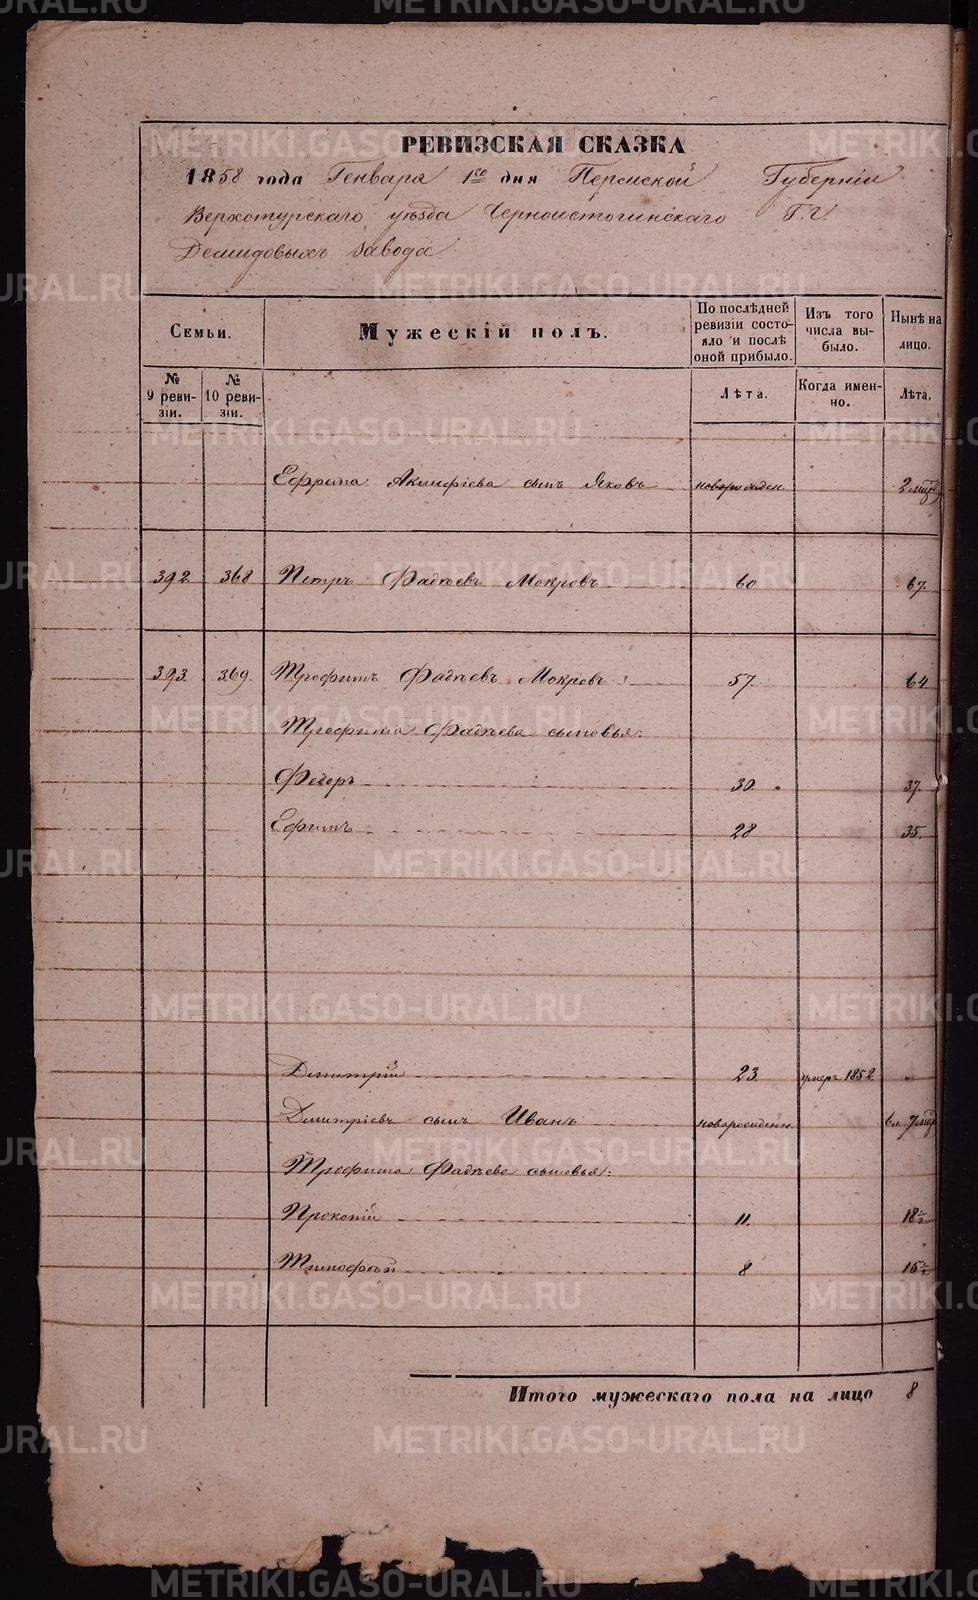 РЕВИЗСКАЯ СКАЗКА
1858 года Генваря 1го дня Пермской Губерніи
Верхотурскаго уѣзда Черноисточинскаго Г.г.
Демидовыхъ завода
Семьи.
Мужескій полъ.
По послѣдней ревизіи состояло и послѣ оной прибыло.
Изъ того числа выбыло.
Нынѣ на лицо.
№ 9 ревизіи.
№ 10 ревизіи.
Лѣта.
Когда именно.
Лѣта.
Ефрема Акинфіева сынъ Яковъ новорожден. 2
392. 368 Петръ Фадѣевъ Мокровъ 60 67.
393. 369. Трофимъ Фадѣевъ Мокровъ 57. 64.
Трофима Фадѣева сыновья:
Федоръ 30. 37.
Ефимъ 28 35.
Димитрій 23. умеръ 1852. „
Димитріевъ сынъ Иванъ новорожденн.
Трофима Фадѣева сыновья:
Прокопій 11. 18½
Тимофѣй 8 15½
Итого мужескаго пола на лицо 8
METRIKI.GASO-URAL.RU